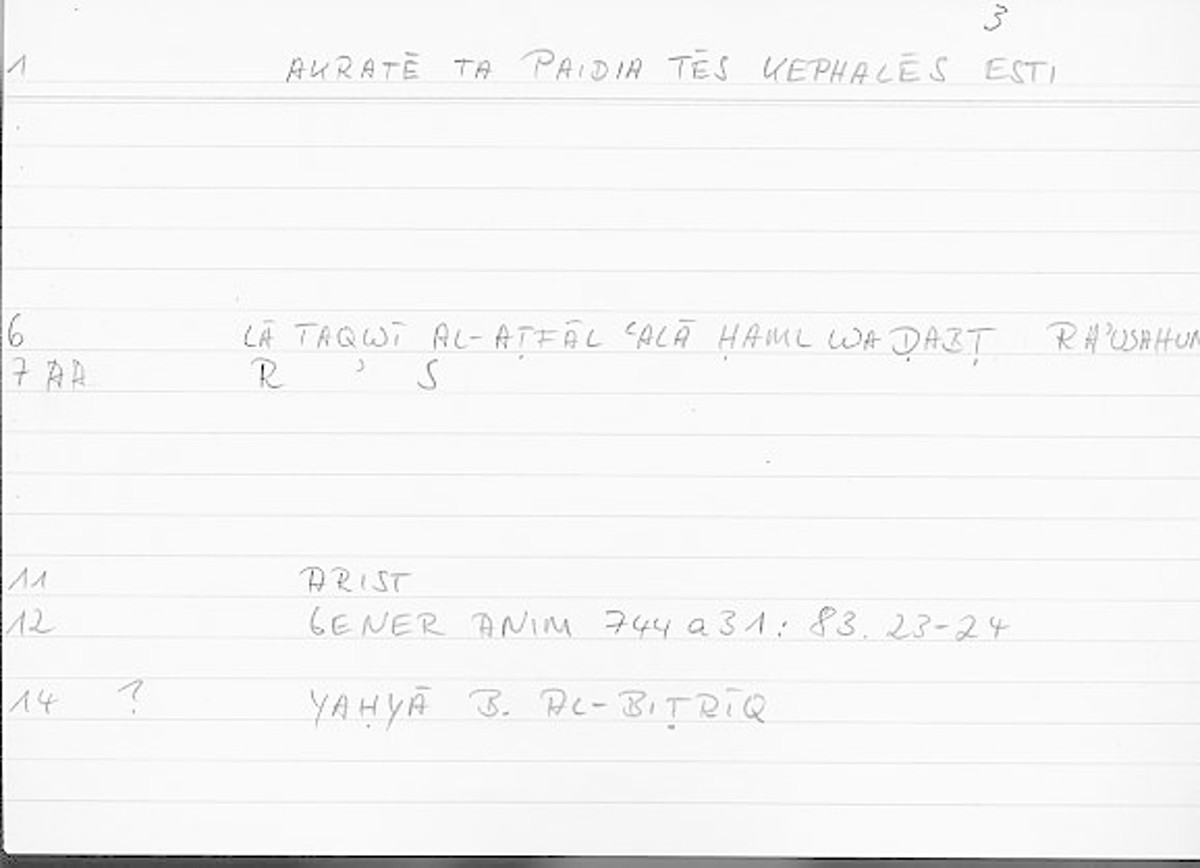 3
1 AKRATĒ TA PAIDIA TĒS KEPHALĒS ESTI
6 LĀ TAQWĪ AL-AṬFĀL ʿALĀ ḤAML WA ḌABṬ RAʾUSAHUM
7 AA R ʾ S
11 ARIST
12 GENER ANIM 744 a 31: 83. 23-24
14 ? YAḤYĀ B. AL-BIṬRĪQ